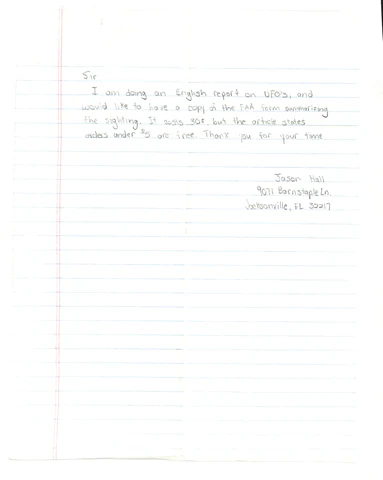 Sir
I am doing an English report on UFO's, and
would like to have a copy of the FAA form summarizing
the sighting. It costs 30¢, but the article states
orders under $5 are free. Thank you for your time.
Jason Hall
9071 Barnstaple Ln.
Jacksonville, FL 32217